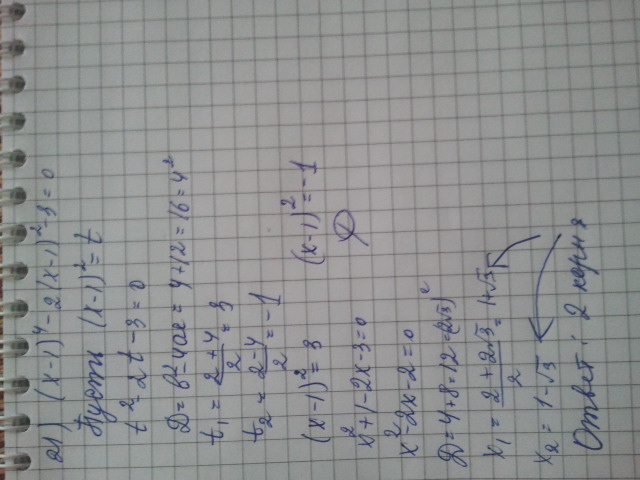 21) (x-1)⁴-2(x-1)²-3=0
Пусть (x-1)²=t
t²-2t-3=0
D=b²-4ac=4+12=16=4²
t₁=(2+4)/2=3
t₂=(2-4)/2=-1
(x-1)²=3 (x-1)²=-1
x²+1-2x-3=0 ∅
x²-2x-2=0
D=4+8=12=(2√3)²
x₁=(2+2√3)/2=1+√3
x₂=1-√3
Ответ: 2 корня